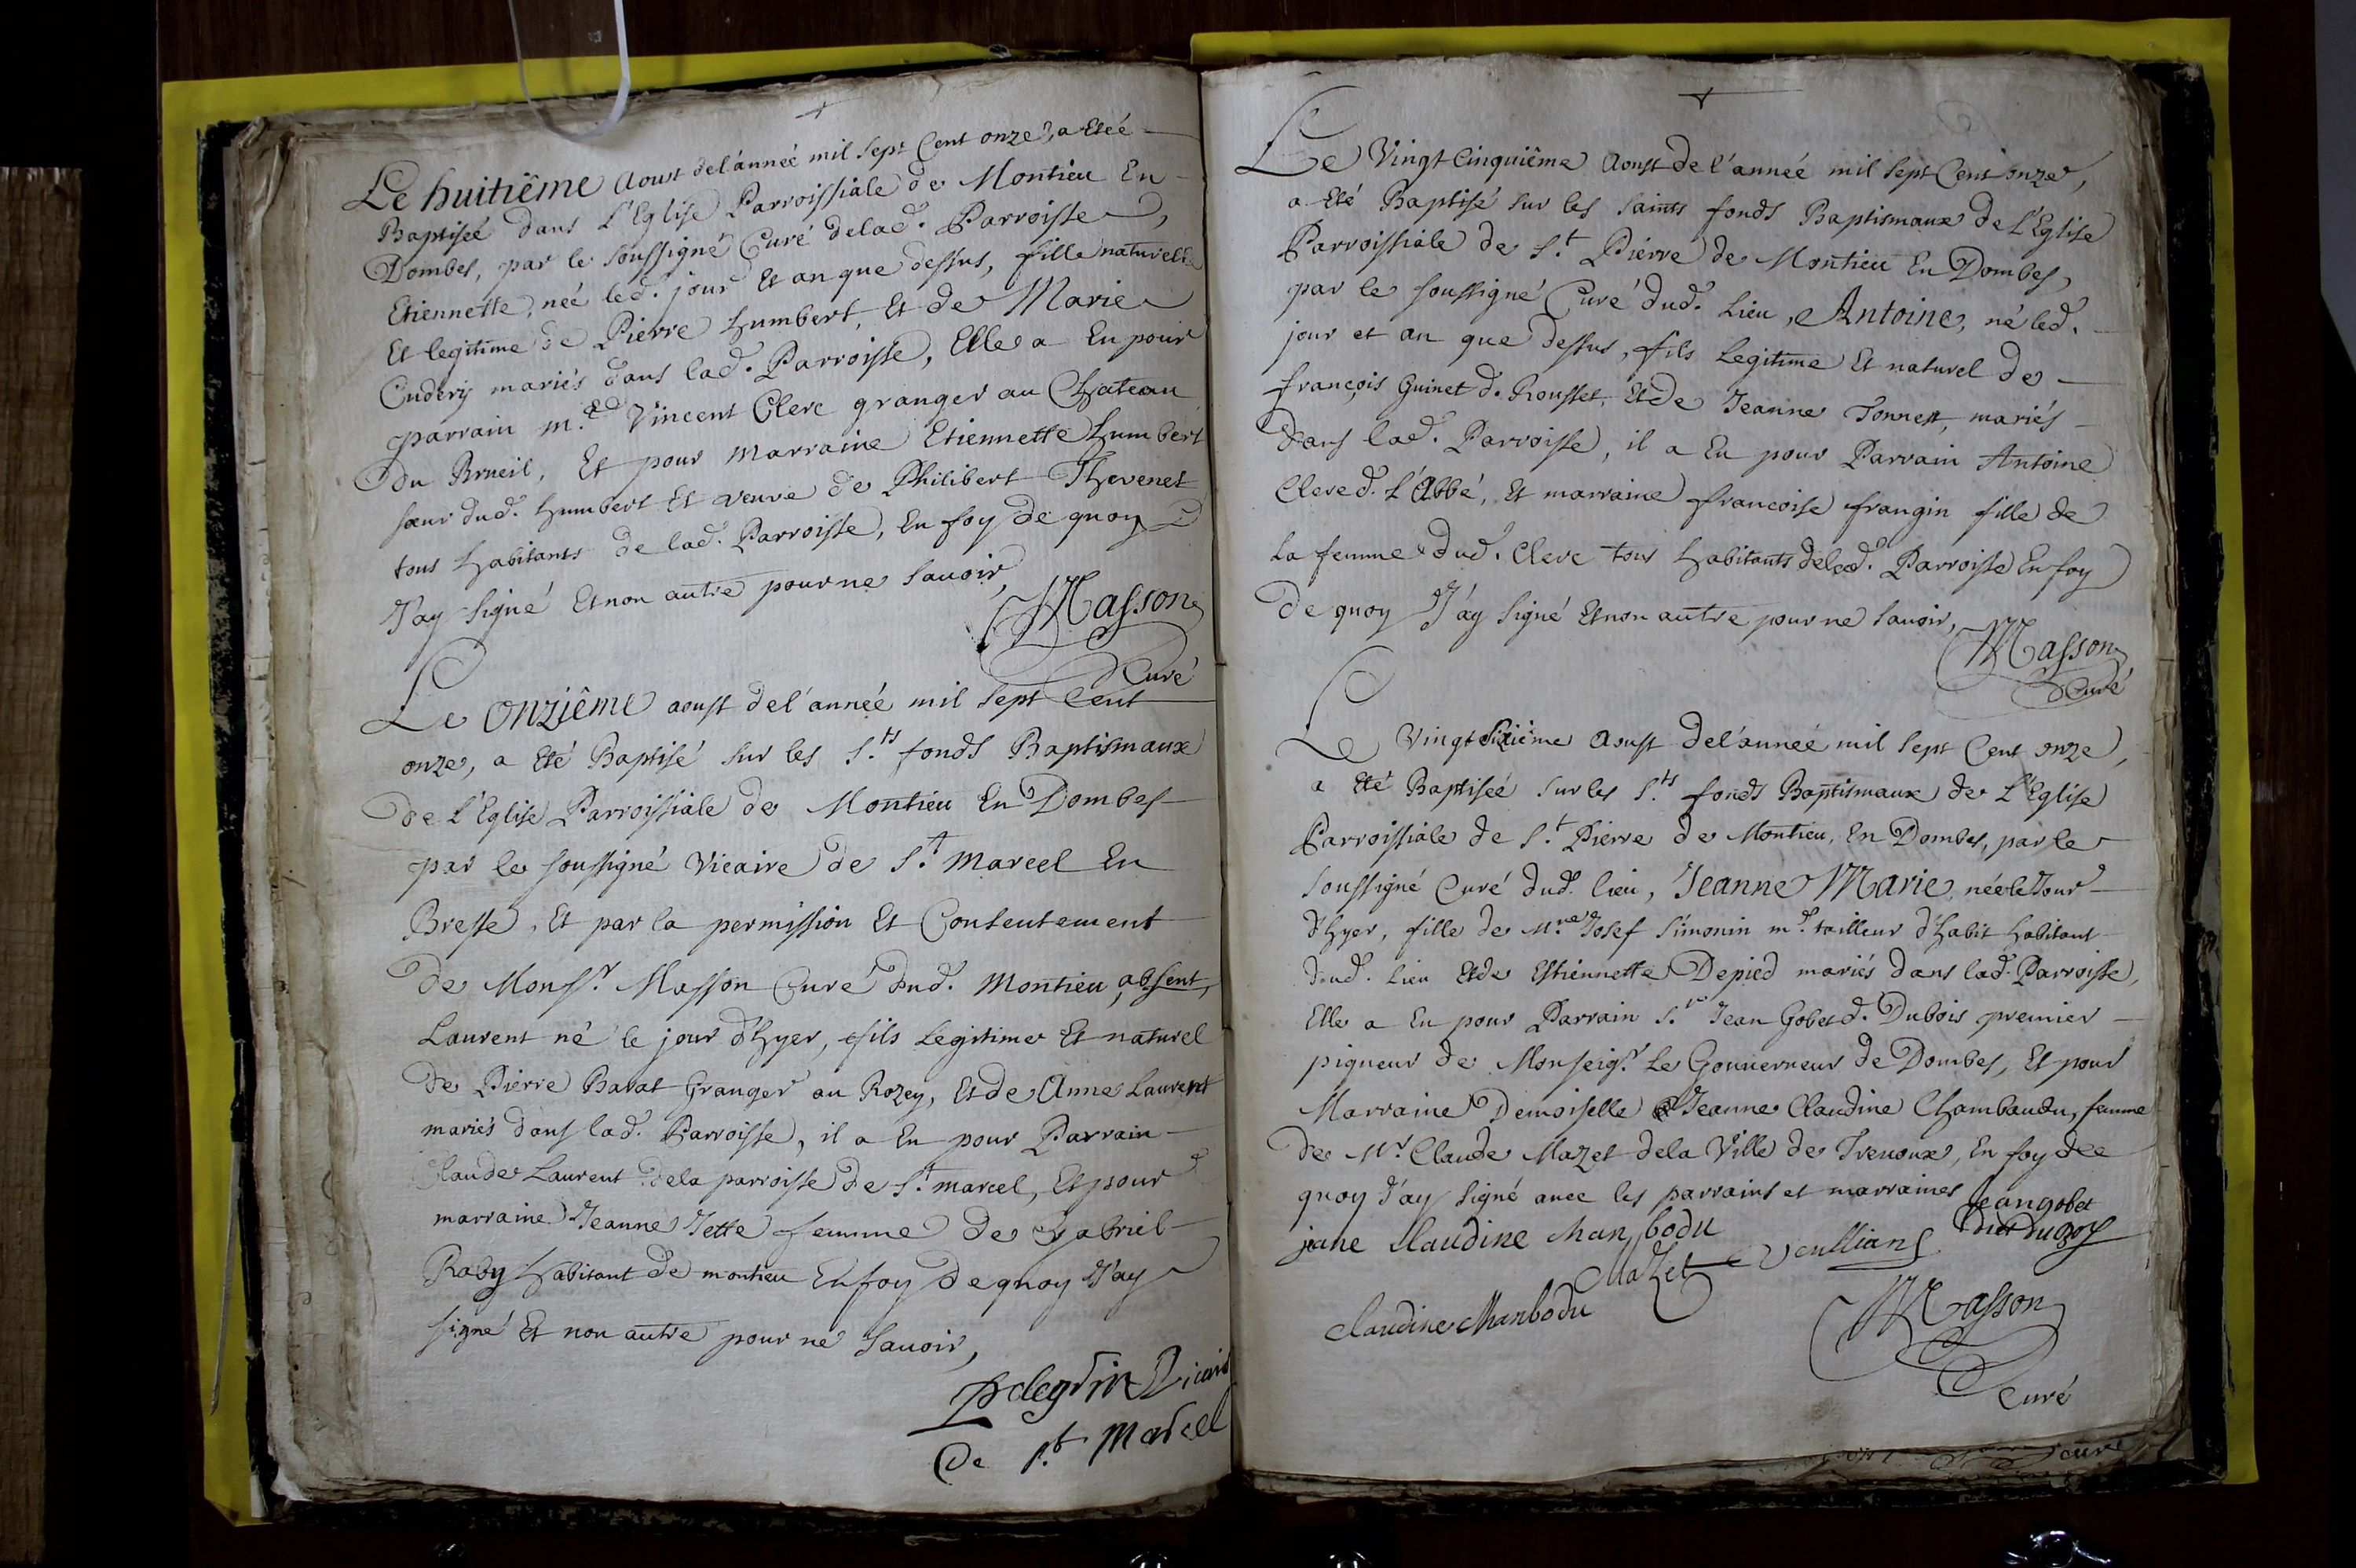 Le huitiême Aoust del'année mil sept Cent onze, a Etéé
Baptiséé dans L'Eglise Parroissiale de Montieu En
Dombes, par le soussigné Curé delad. Parroisse,
Etiennette, néé led. jour Et an que dessus, fille naturelle
Et legitime de Pierre humbert, Et de Marie
Cudery mariés dans lad. Parroisse, Elle a Eu pour
parrain m.e Vincent Clerc granger au Chateau
Du Brueil, Et pour marraine Etiennette humbert
sœur dud. humbert Et veuve de Philibert Thevenet
tous habitants de lad. Parroisse, En foy de quoy
J'ay signé Et non autre pour ne savoir,
Masson
Curé
Le Onziême aoust del'année mil sept Cent
onze, a Eté Baptisé sur les S.ts fonds Baptismaux
de L'Eglise Parroissiale de Montieu En Dombes
par le soussigné Vicaire de S.t Marcel En
Bresse, Et par la permission Et Consentement
de Mons.r Masson Curé dud. Montieu, absent,
Laurent né le jour d'hyer, fils Legitime Et naturel
de Pierre Barat Granger au Rozey, Et de Anne Laurent
mariés dans lad. Parroisse, il a Eu pour Parrain
Claude Laurent dela parroisse de S.t marcel, Et pour
marraine Jeanne Jette femme de Gabriel
Raby habitant de montieu En foy de quoy J'ay
signé Et non autre pour ne savoir,
Pelegrin Vicaire
De S.t Marcel
Le Vingt Cinquiême Aoust de l'année mil sept Cent onze,
a Eté Baptisé sur les saints fonds Baptismaux de L'Eglise
Parroissiale de S.t Pierre de Montieu En Dombes,
par le soussigné Curé dud. Lieu, Antoine, né led.
jour et an que dessus, fils Legitime Et naturel de
françois Guinet d. Rousset, Et de Jeanne Tonnest, mariés
Dans lad. Parroisse, il a Eu pour Parrain Antoine
Clerc d. L'Abbé, Et marraine francoise frangin fille de
la femme dud. Clerc tous habitants delad. Parroisse En foy
De quoy J'ay signé Et non autre pour ne savoir,
Masson
Curé
Le Vingt Sixiême Aoust del'année mil sept Cent onze,
a Eté Baptiséé sur les S.ts fonds Baptismaux de L'Eglise
Parroissiale de S.t Pierre de Montieu, En Dombes, par le
soussigné Curé dud. lieu, Jeanne Marie, néé le Jour
d'hyer, fille de M.re Josef Simonin m.d tailleur d'habit habitant
dud. Lieu Et de Estiennette Depied mariés dans lad. Parroisse,
Elle a Eu pour Parrain S.r Jean Gobet d. Dubois premier
piqueur de Monseig.r Le Gouverneur de Dombes, Et pour
Marraine Demoiselle Jeanne Claudine Chambaudu, femme
de M.r Claude Mazet dela Ville de Trevoux, En foy dee
quoy J'ay signé avec les parrains et marraines
Jean gobet
jane Claudine Chanbodu
dit Duboy
Mazet
Claudine Chanbodu
Masson
Curé
curé